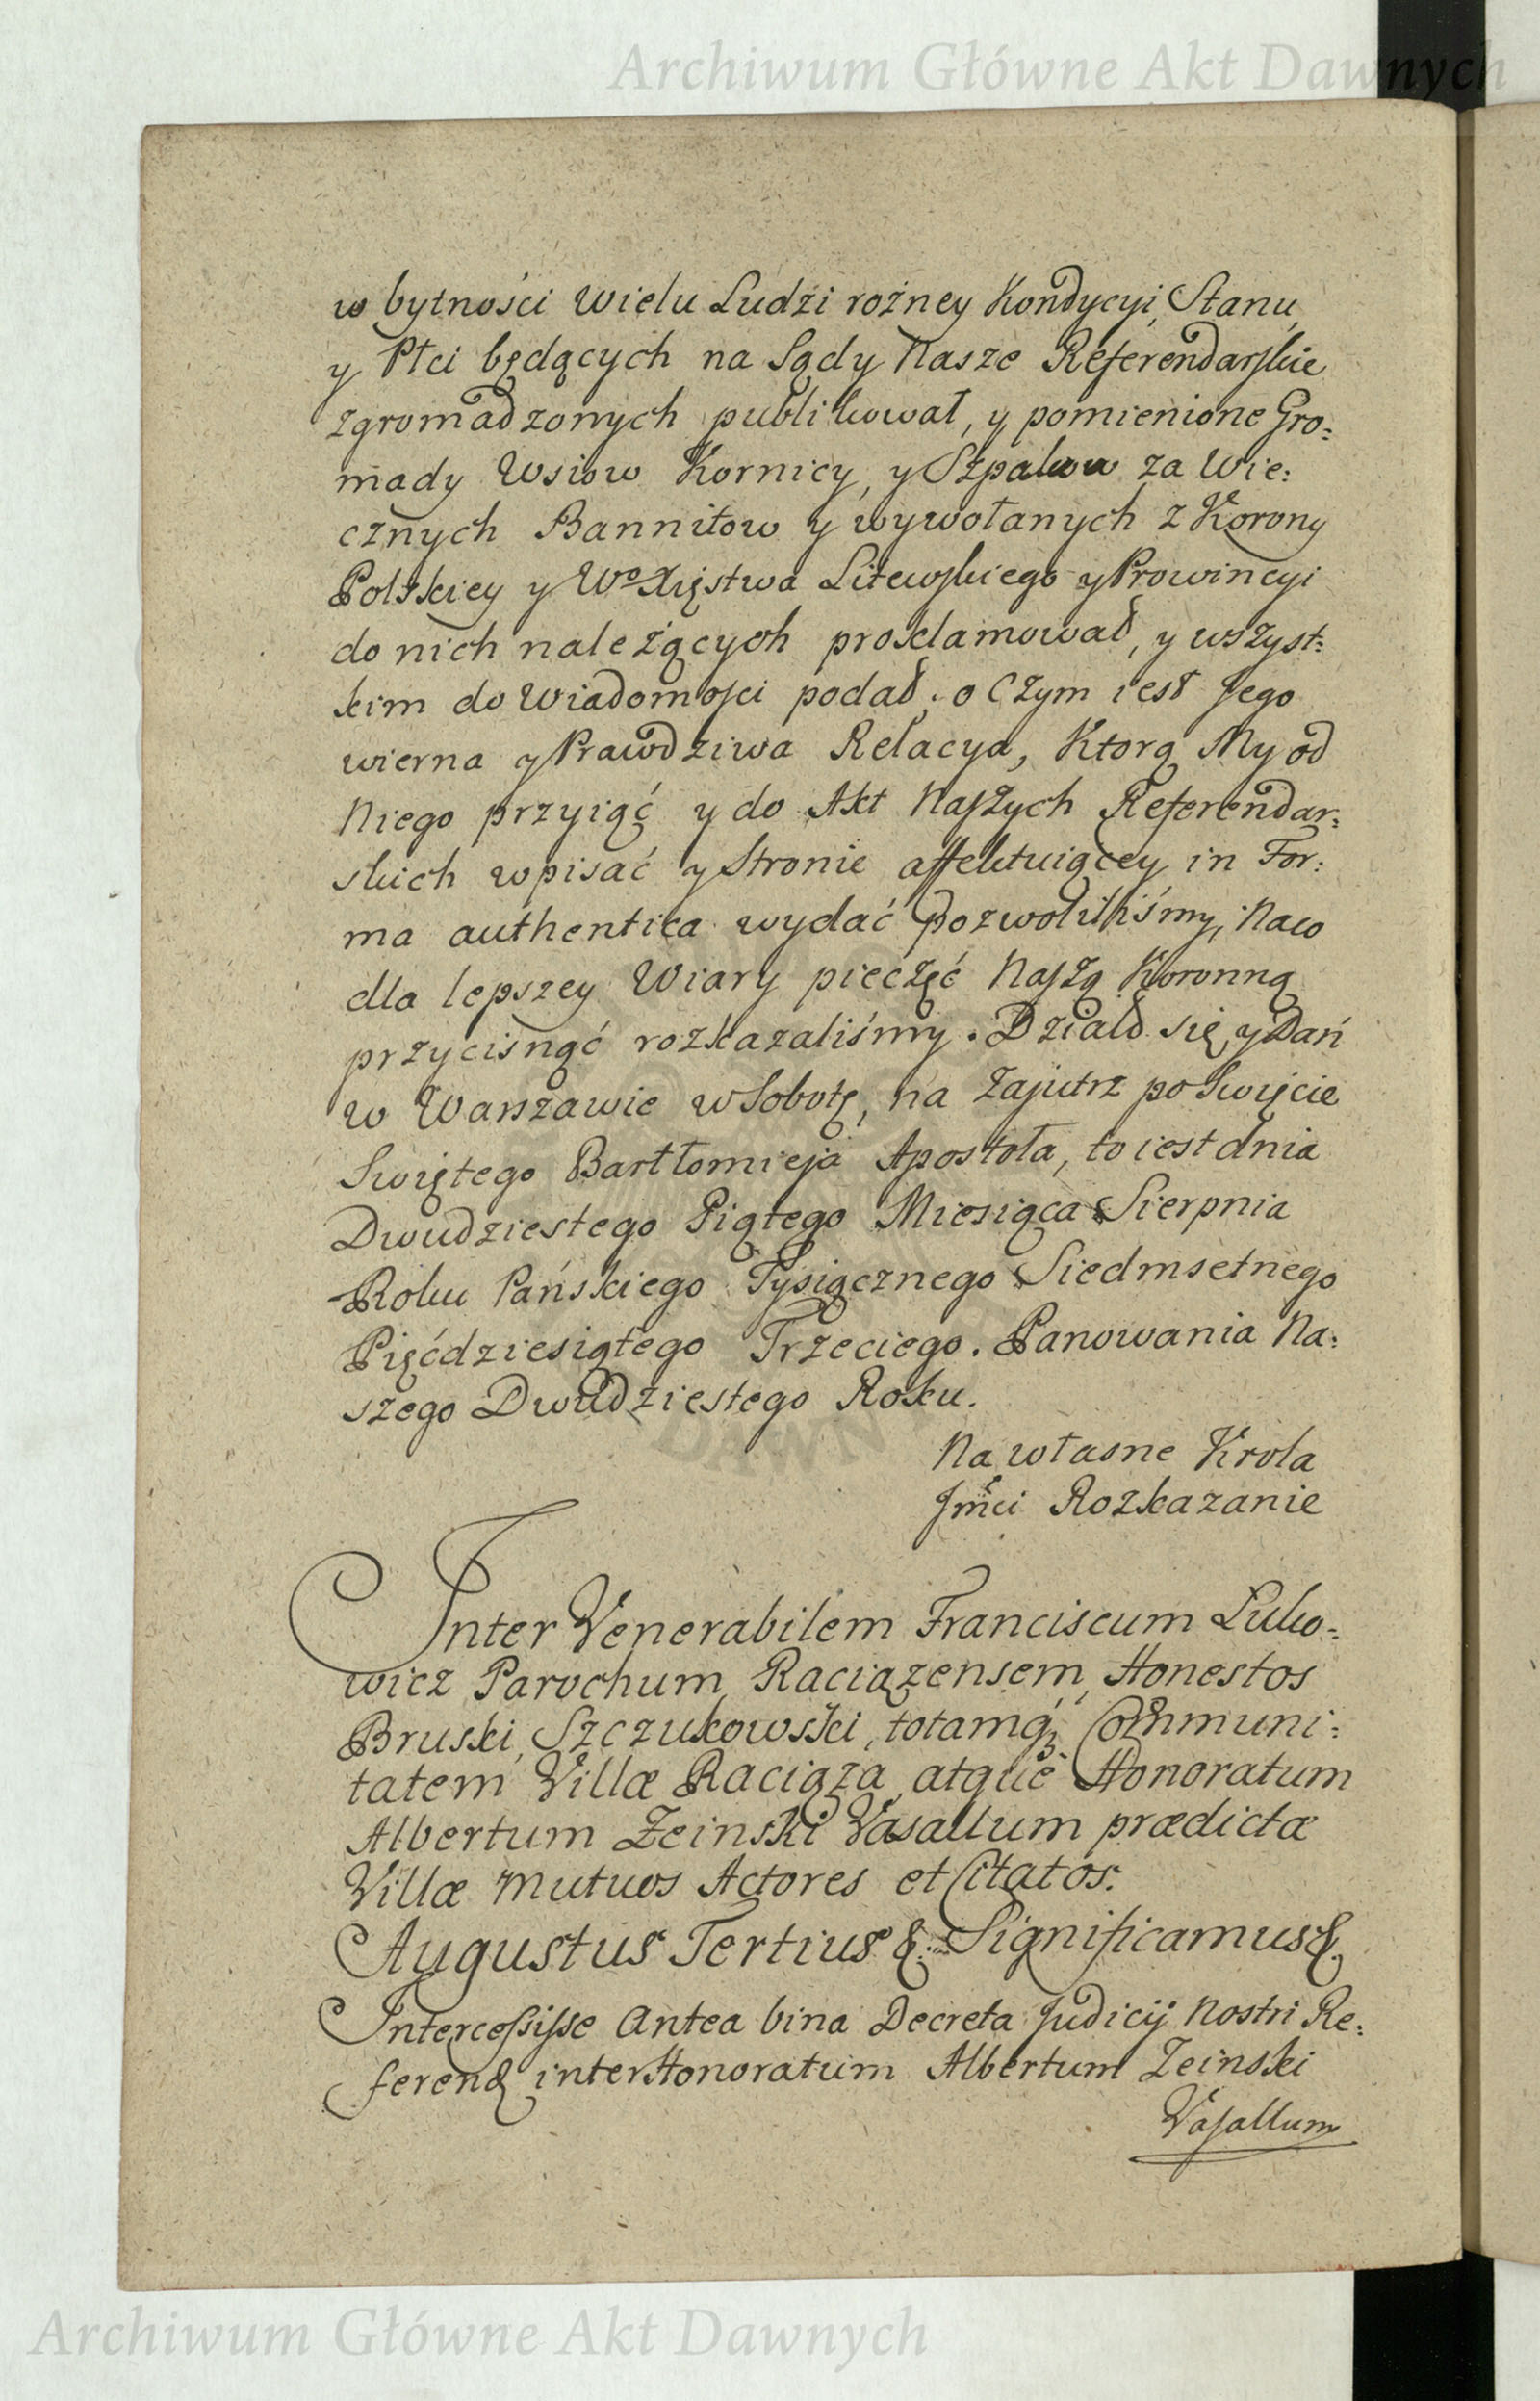 Archiwum Główne Akt Dawnych
w bytności wielu Ludźi rożney Kondycyi, Stanu,
y Płci będących na Sądy Nasze Referendarskie
zgromadzonych publikował, y pomienione Gro:
mady Wsiow Kornicy, y Szpakow za Wie:
cznych Bannitow y wywołanych z Korony
Polskiey y Wo Xięstwa Litewskiego y Prowincyi
do nich należących proklamował, y wszyst:
kim do wiadomości podał. o czym iest Jego
wierna y Prawdziwa Relacya, Ktorą My od
Niego przyiąć y do Akt Naszych Referendar:
skich wpisać y Stronie affektuiącey in For:
ma authentica wydać pozwoliliśmy, Naco
dla lepszey Wiary pieczęć Naszą Koronną
przycisnąć rozkazaliśmy. Działo się y Dań
w Warszawie w Sobotę, na Zajutrz po Swięcie
Swiętego Bartłomieja Apostoła, to iest dnia
Dwudziestego Piątego Miesiąca Sierpnia
Roku Pańskiego Tysiącznego Siedmsetnego
Pięćdziesiątego Trzeciego. Panowania Na:
szego Dwudziestego Roku.
Na własne Krola
Jmci Rozkazanie
Inter Venerabilem Franciscum Luko:
wicz Parochum Raciązensem, Honestos
Bruski, Szczukowski, totamq3 Communi:
tatem Villæ Raciąza atque Honoratum
Albertum Zeinski Vasallum prædictæ
Villæ Mutuos Actores et Citatos.
Augustus Tertius &. Significamus &.
Intercessisse Antea bina Decreta Judicij Nostri Re:
ferend inter Honoratum Albertum Zeinski
Vasallum
Archiwum Główne Akt Dawnych